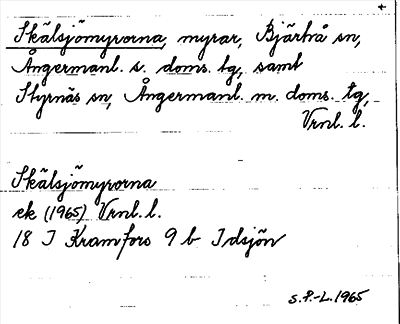 +
Skälsjömyrorna, myrar, Bjärtrå sn,
Ångermanl. s. doms. tg, samt
Styrnäs sn, Ångermanl. m. doms. tg,
Vrnl. l.
Skälsjömyrorna
ek (1965) Vrnl. l.
18 I Kramfors 9 b Idsjön
S.P.-L. 1965